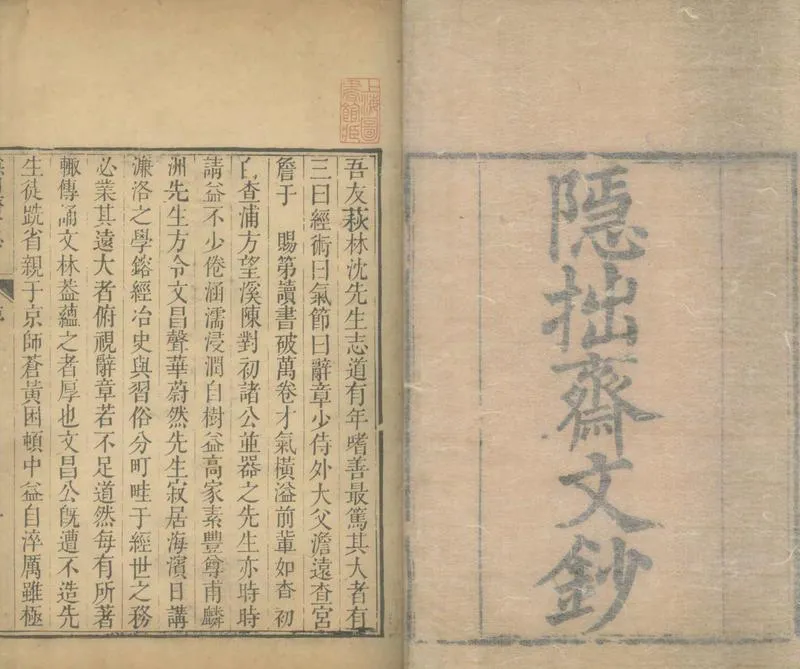 隱拙齋文鈔
上海圖
書館藏
吾友萩林沈先生志道有年嗜善最篤其大者有
三曰經術曰氣節曰辭章少侍外大父澹遠查宮
詹于 賜第讀書破萬卷才氣橫溢前輩如查初
白查浦方望溪陳對初諸公並器之先生亦時時
請益不少倦涵濡浸潤自樹益高家素豐尊甫麟
洲先生方令文昌聲華蔚然先生寂居海濱日講
濂洛之學鎔經冶史與習俗分町畦于經世之務
必業其遠大者俯視辭章若不足道然每有所著
輙傳誦文林葢蘊之者厚也文昌公旣遭不造先
生徒跣省親于京師蒼黃困頓中益自淬厲雖極